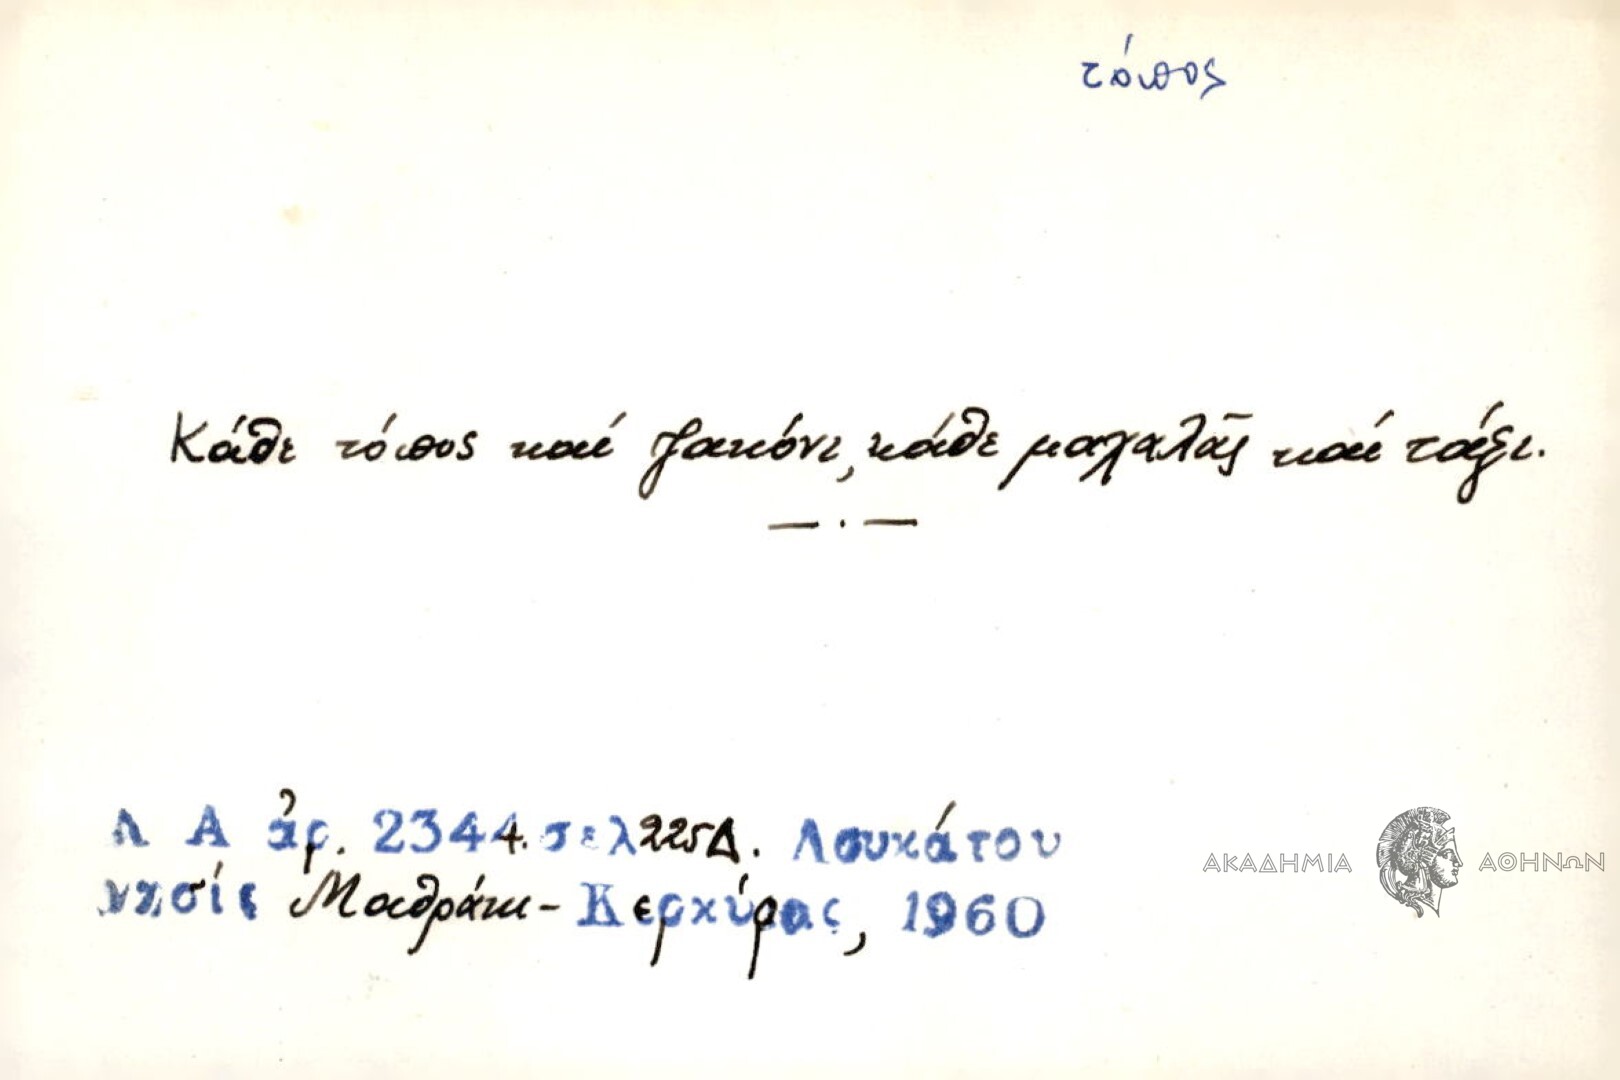 τόπος
Κάθε τόπος καί ζακόνι, κάθε μαχαλᾶς καί τάξι.
— . —
Λ Α ἀρ. 2344. σελ 225 Δ. Λουκάτου
νησίς Μαθράκι - Κερκύρας, 1960
ΑΚΑΔΗΜΙΑ ΑΘΗΝΩΝ